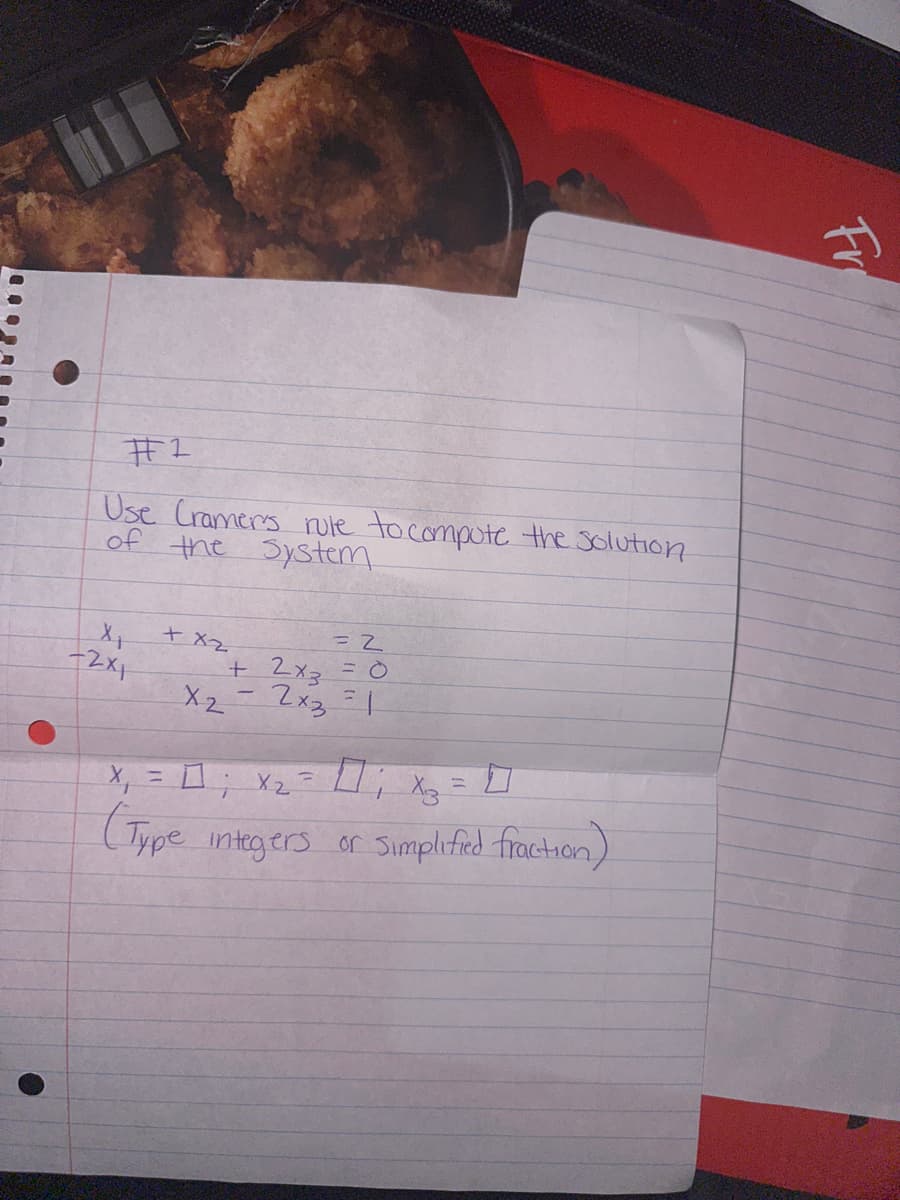 Fr
#1
Use Cramers rule to compute the solution
of the System
x₁ + x₂ = 2
-2x₁ + 2x₃ = 0
x₂ - 2x₃ = 1
x₁ = □; x₂ = □; x₃ = □
(Type integers or simplified fraction)